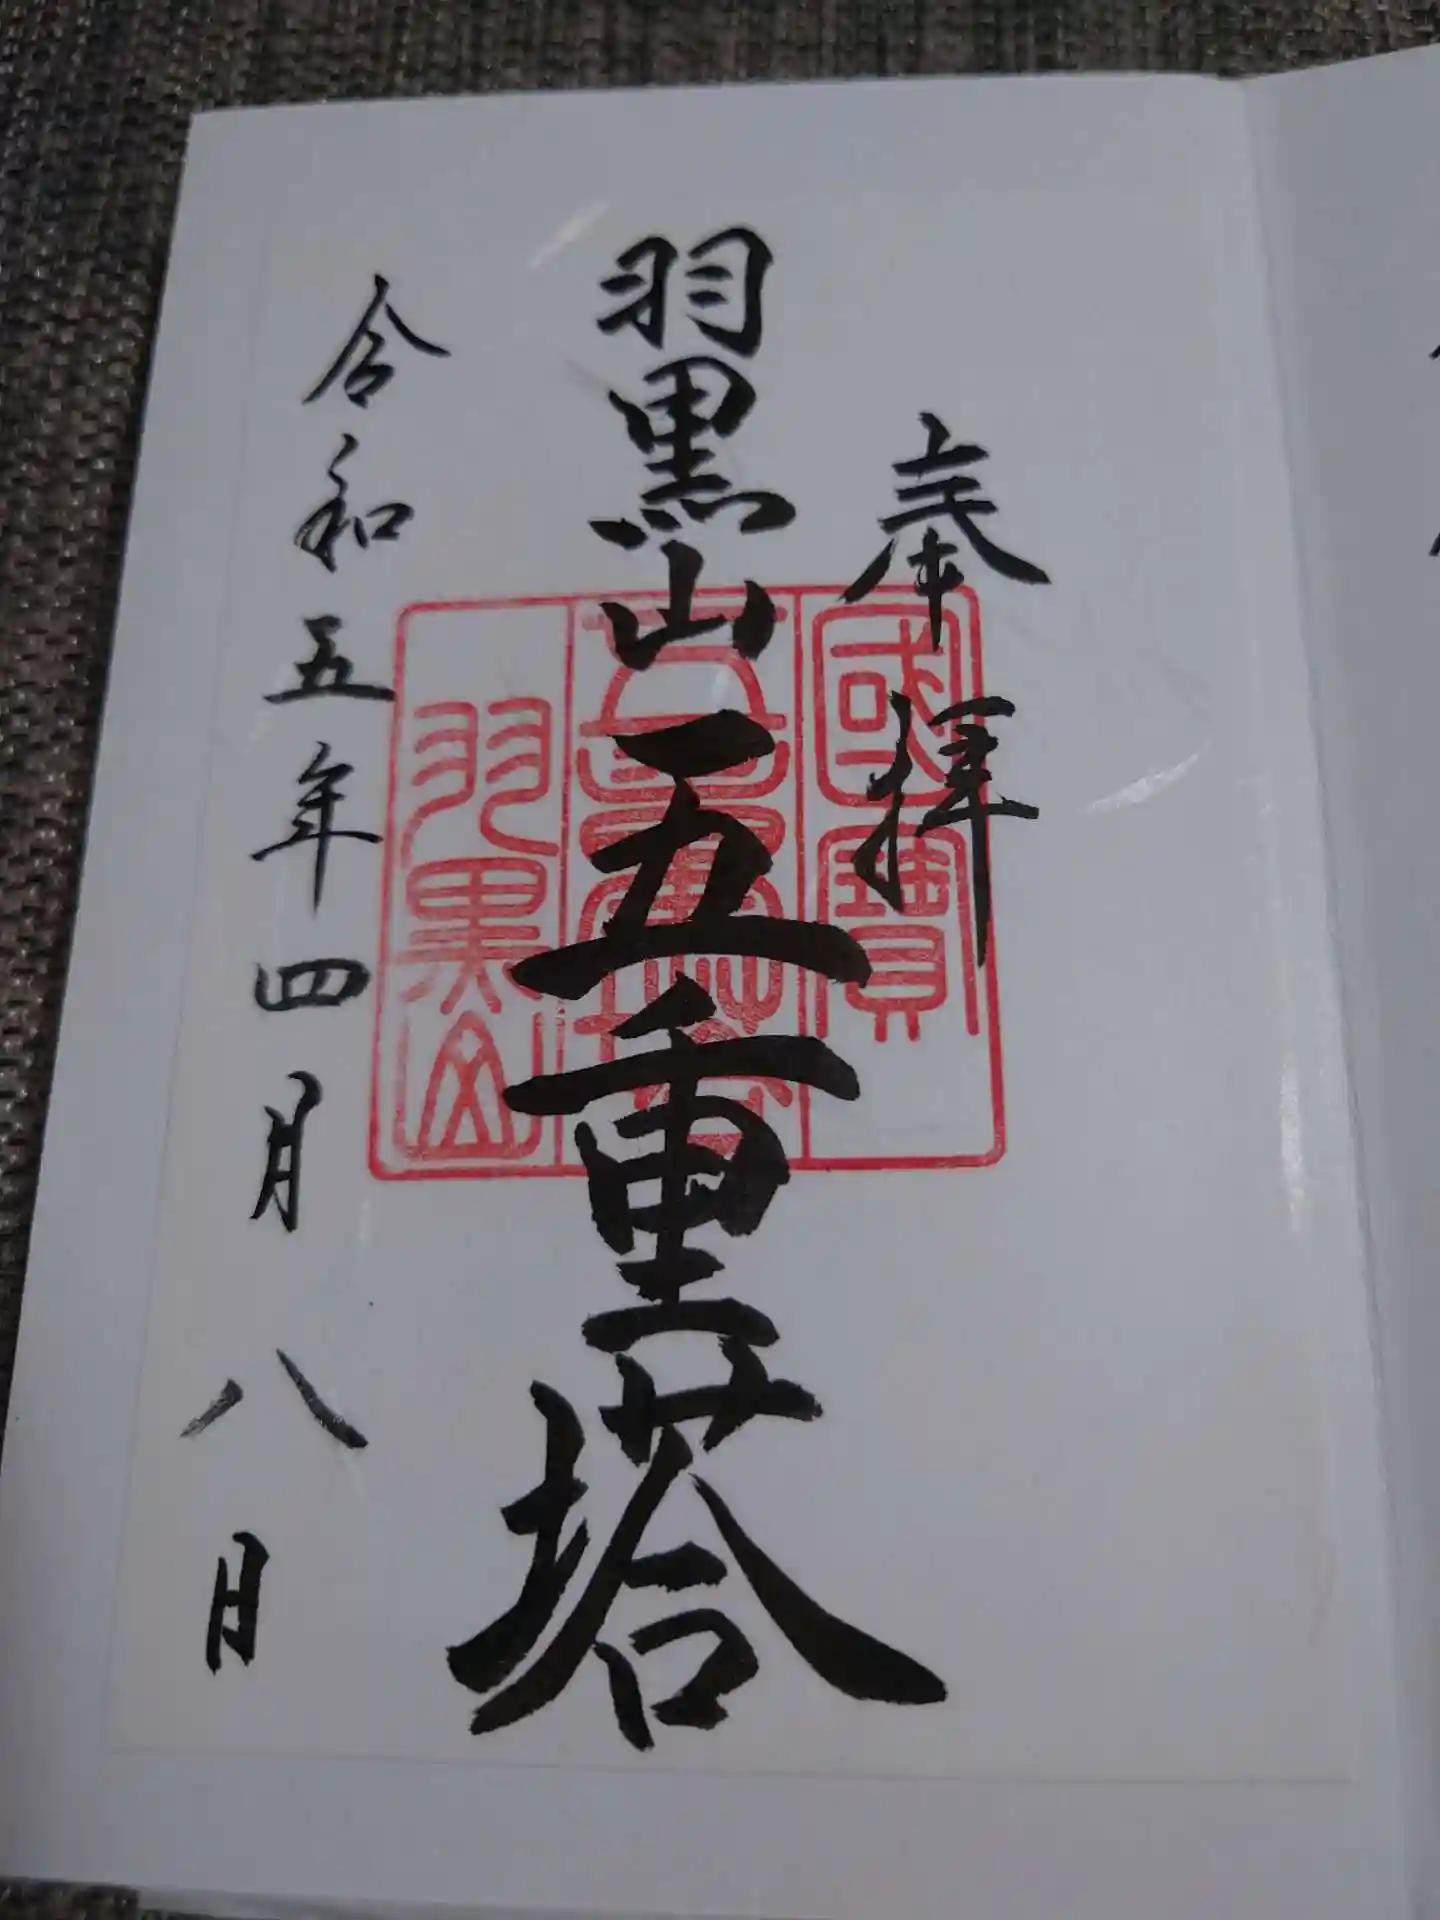 奉拝
羽黒山五重塔
令和五年四月八日
國寳
五重塔
羽黒山